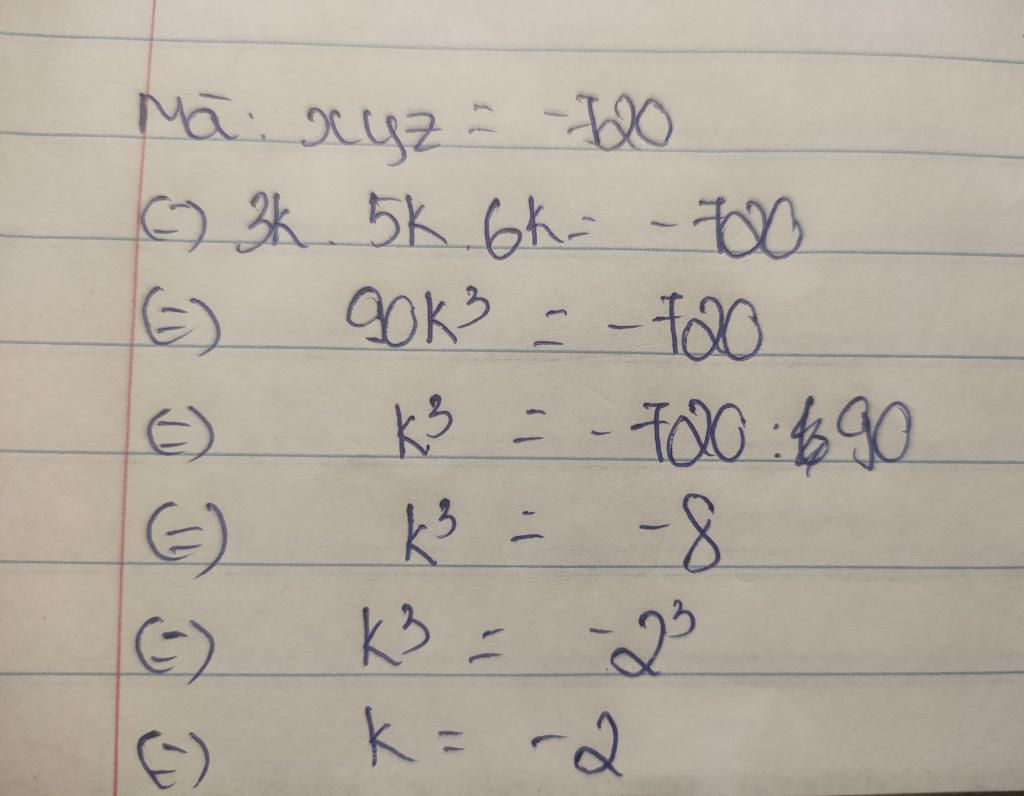 Mà: xyz = -720
(=) 3k . 5k . 6k = -720
(=) 90k³ = -720
(=) k³ = -720 : 90
(=) k³ = -8
(=) k³ = -2³
(=) k = -2